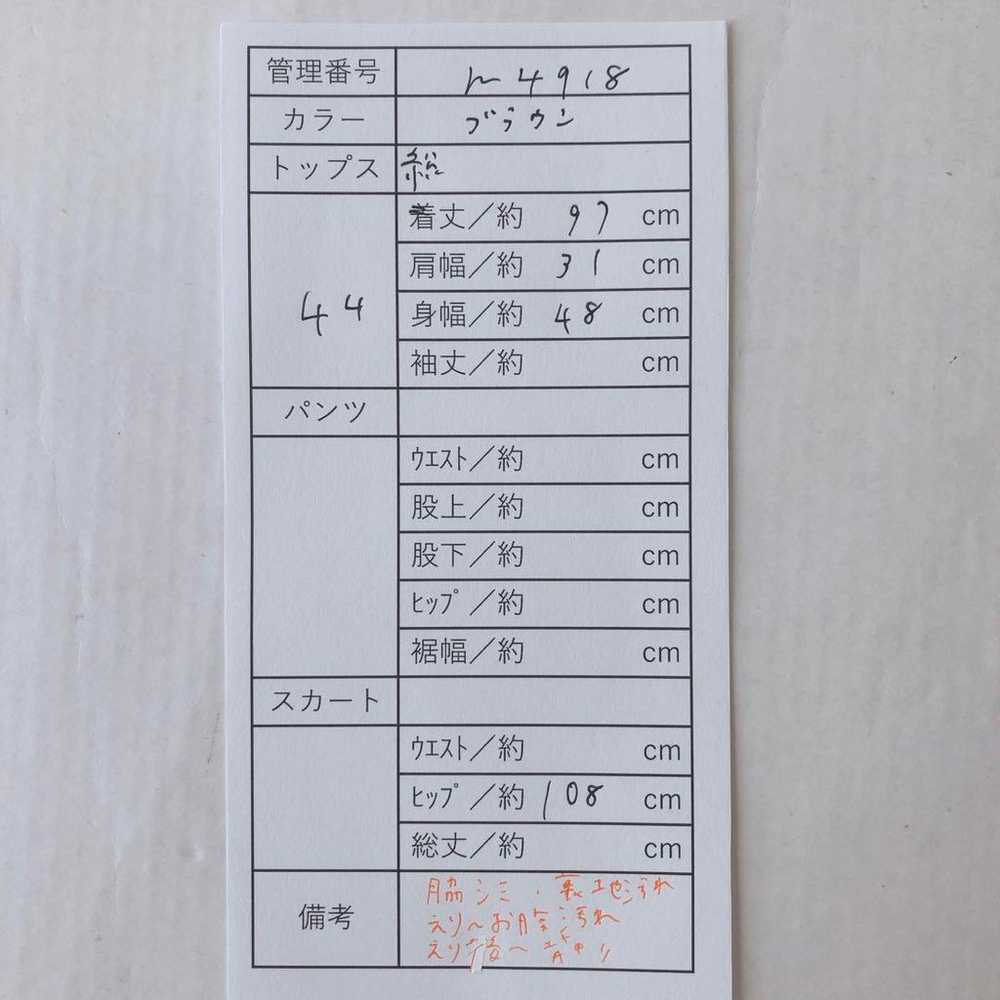 管理番号 m4918
カラー ブラウン
トップス 総
着丈／約 97 cm
肩幅／約 31 cm
44 身幅／約 48 cm
袖丈／約 cm
パンツ
ｳｴｽﾄ／約 cm
股上／約 cm
股下／約 cm
ﾋｯﾌﾟ／約 cm
裾幅／約 cm
スカート
ｳｴｽﾄ／約 cm
ﾋｯﾌﾟ／約 108 cm
総丈／約 cm
脇シミ・裏地汚れ
備考 えり〜お腹汚れ
えり後〜背中